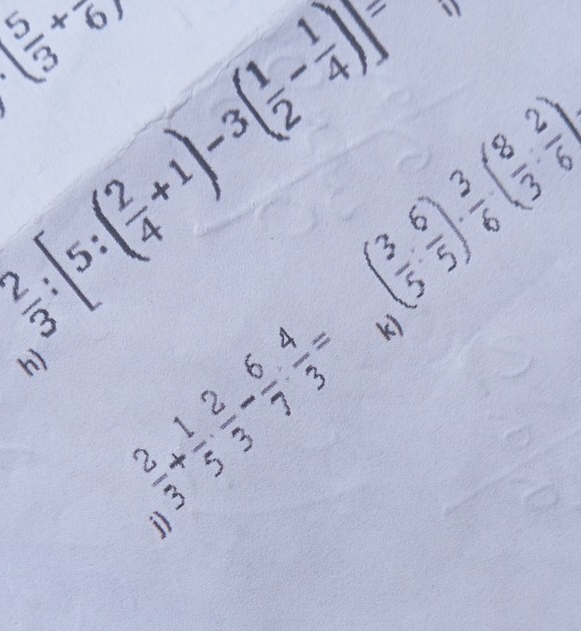 (5/3 + /6)
h) 2/3 : [5 : (2/4 + 1) - 3(1/2 - 1/4)] =
j) 2/3 + 1/5 · 2/3 - 6/7 · 4/3 =
k) (3/5 : 6/5) · 3/6 · (8/3 : 2/6)